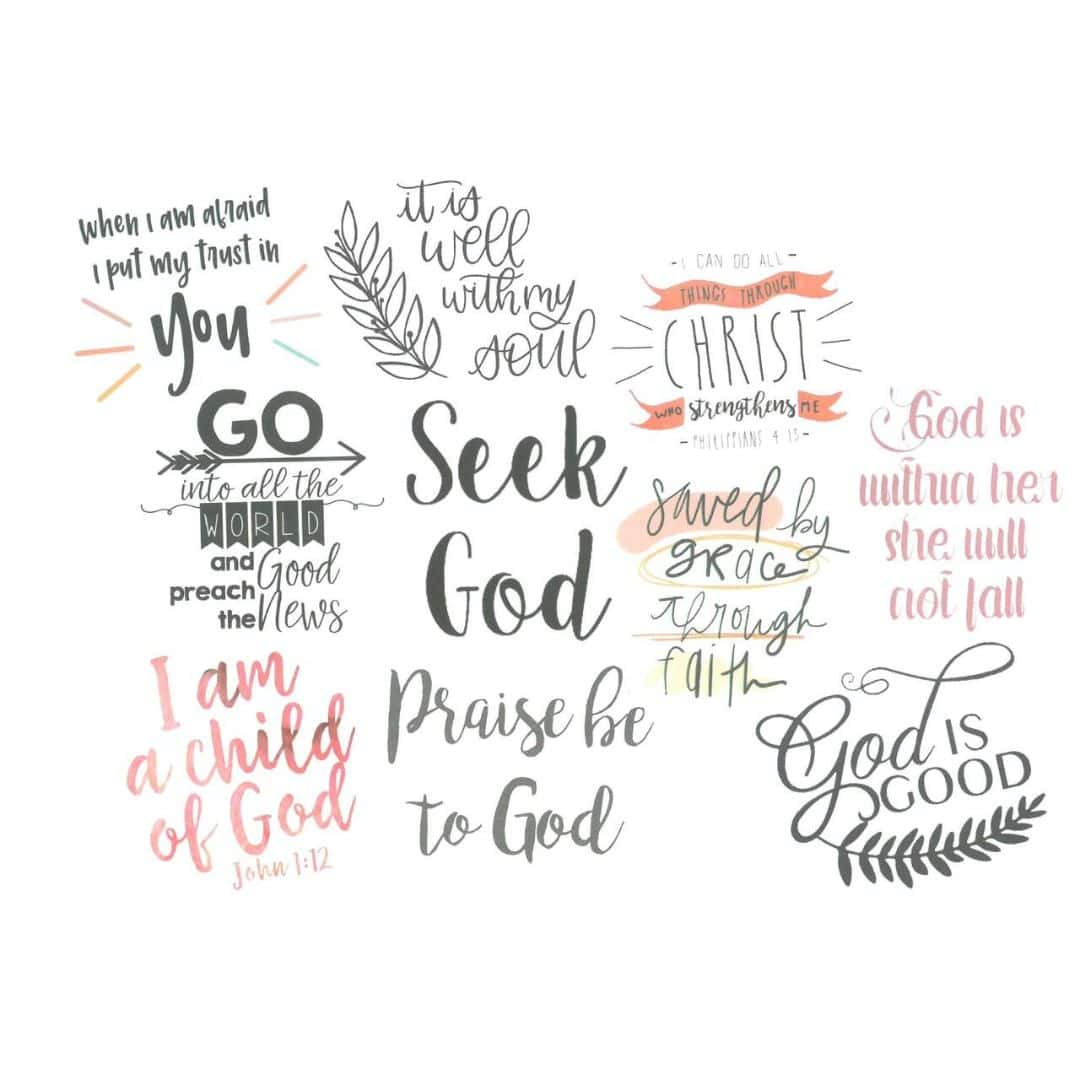 when I am afraid
I put my trust in
you
it is
well
with my
soul
- I CAN DO ALL -
THINGS THROUGH
CHRIST
WHO strengthens ME
- PHILIPPIANS 4 13 -
GO
into all the
WORLD
and
preach
the
Good
News
Seek
God
saved by
grace
through
faith
God is
within her
she will
not fall
I am
a child
of God
John 1:12
Praise be
to God
God IS
GOOD